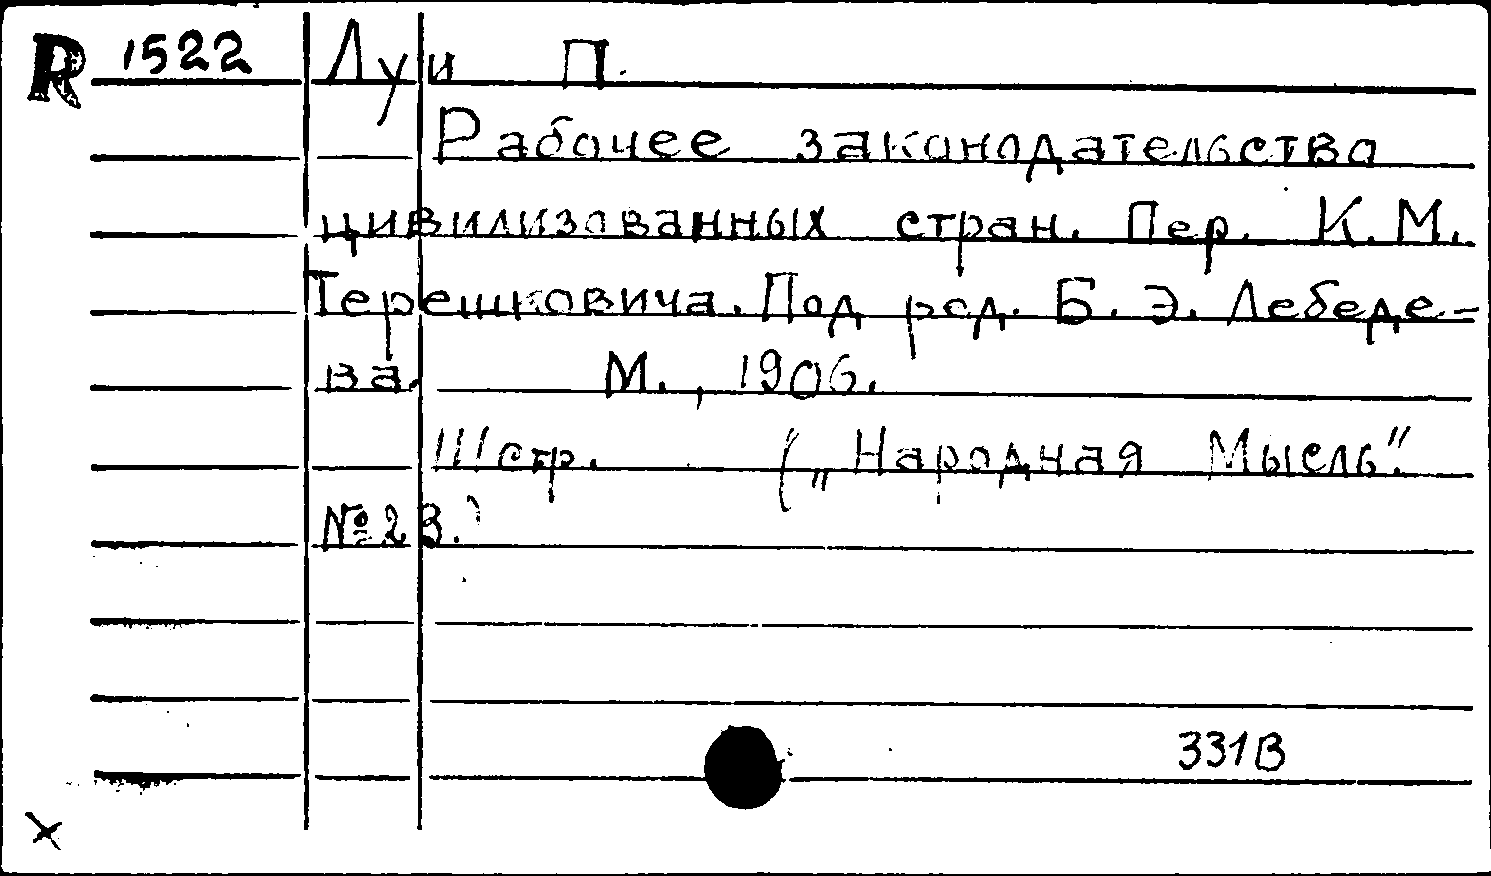 R 1522 Луи П.
Рабочее законодательства
цивилизованных стран. Пер. К.М.
Терешковича. Под ред. Б. Э. Лебеде-
ва. М., 1906.
111 стр. („Народная Мысль".
№23.)
331В